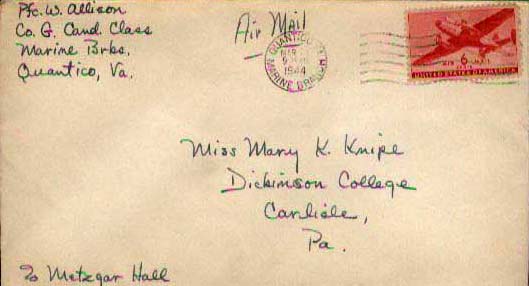 Pfc. W. Allison
Co. G. Cand. Class
Marine Brks.
Quantico, Va.
Air Mail
QUANTICO, VA.
MAR
1944
MARINE BRANCH
AIR 6¢ MAIL
UNITED STATES OF AMERICA
Miss Mary K. Knipe
Dickinson College
Carlisle,
Pa.
% Metzgar Hall